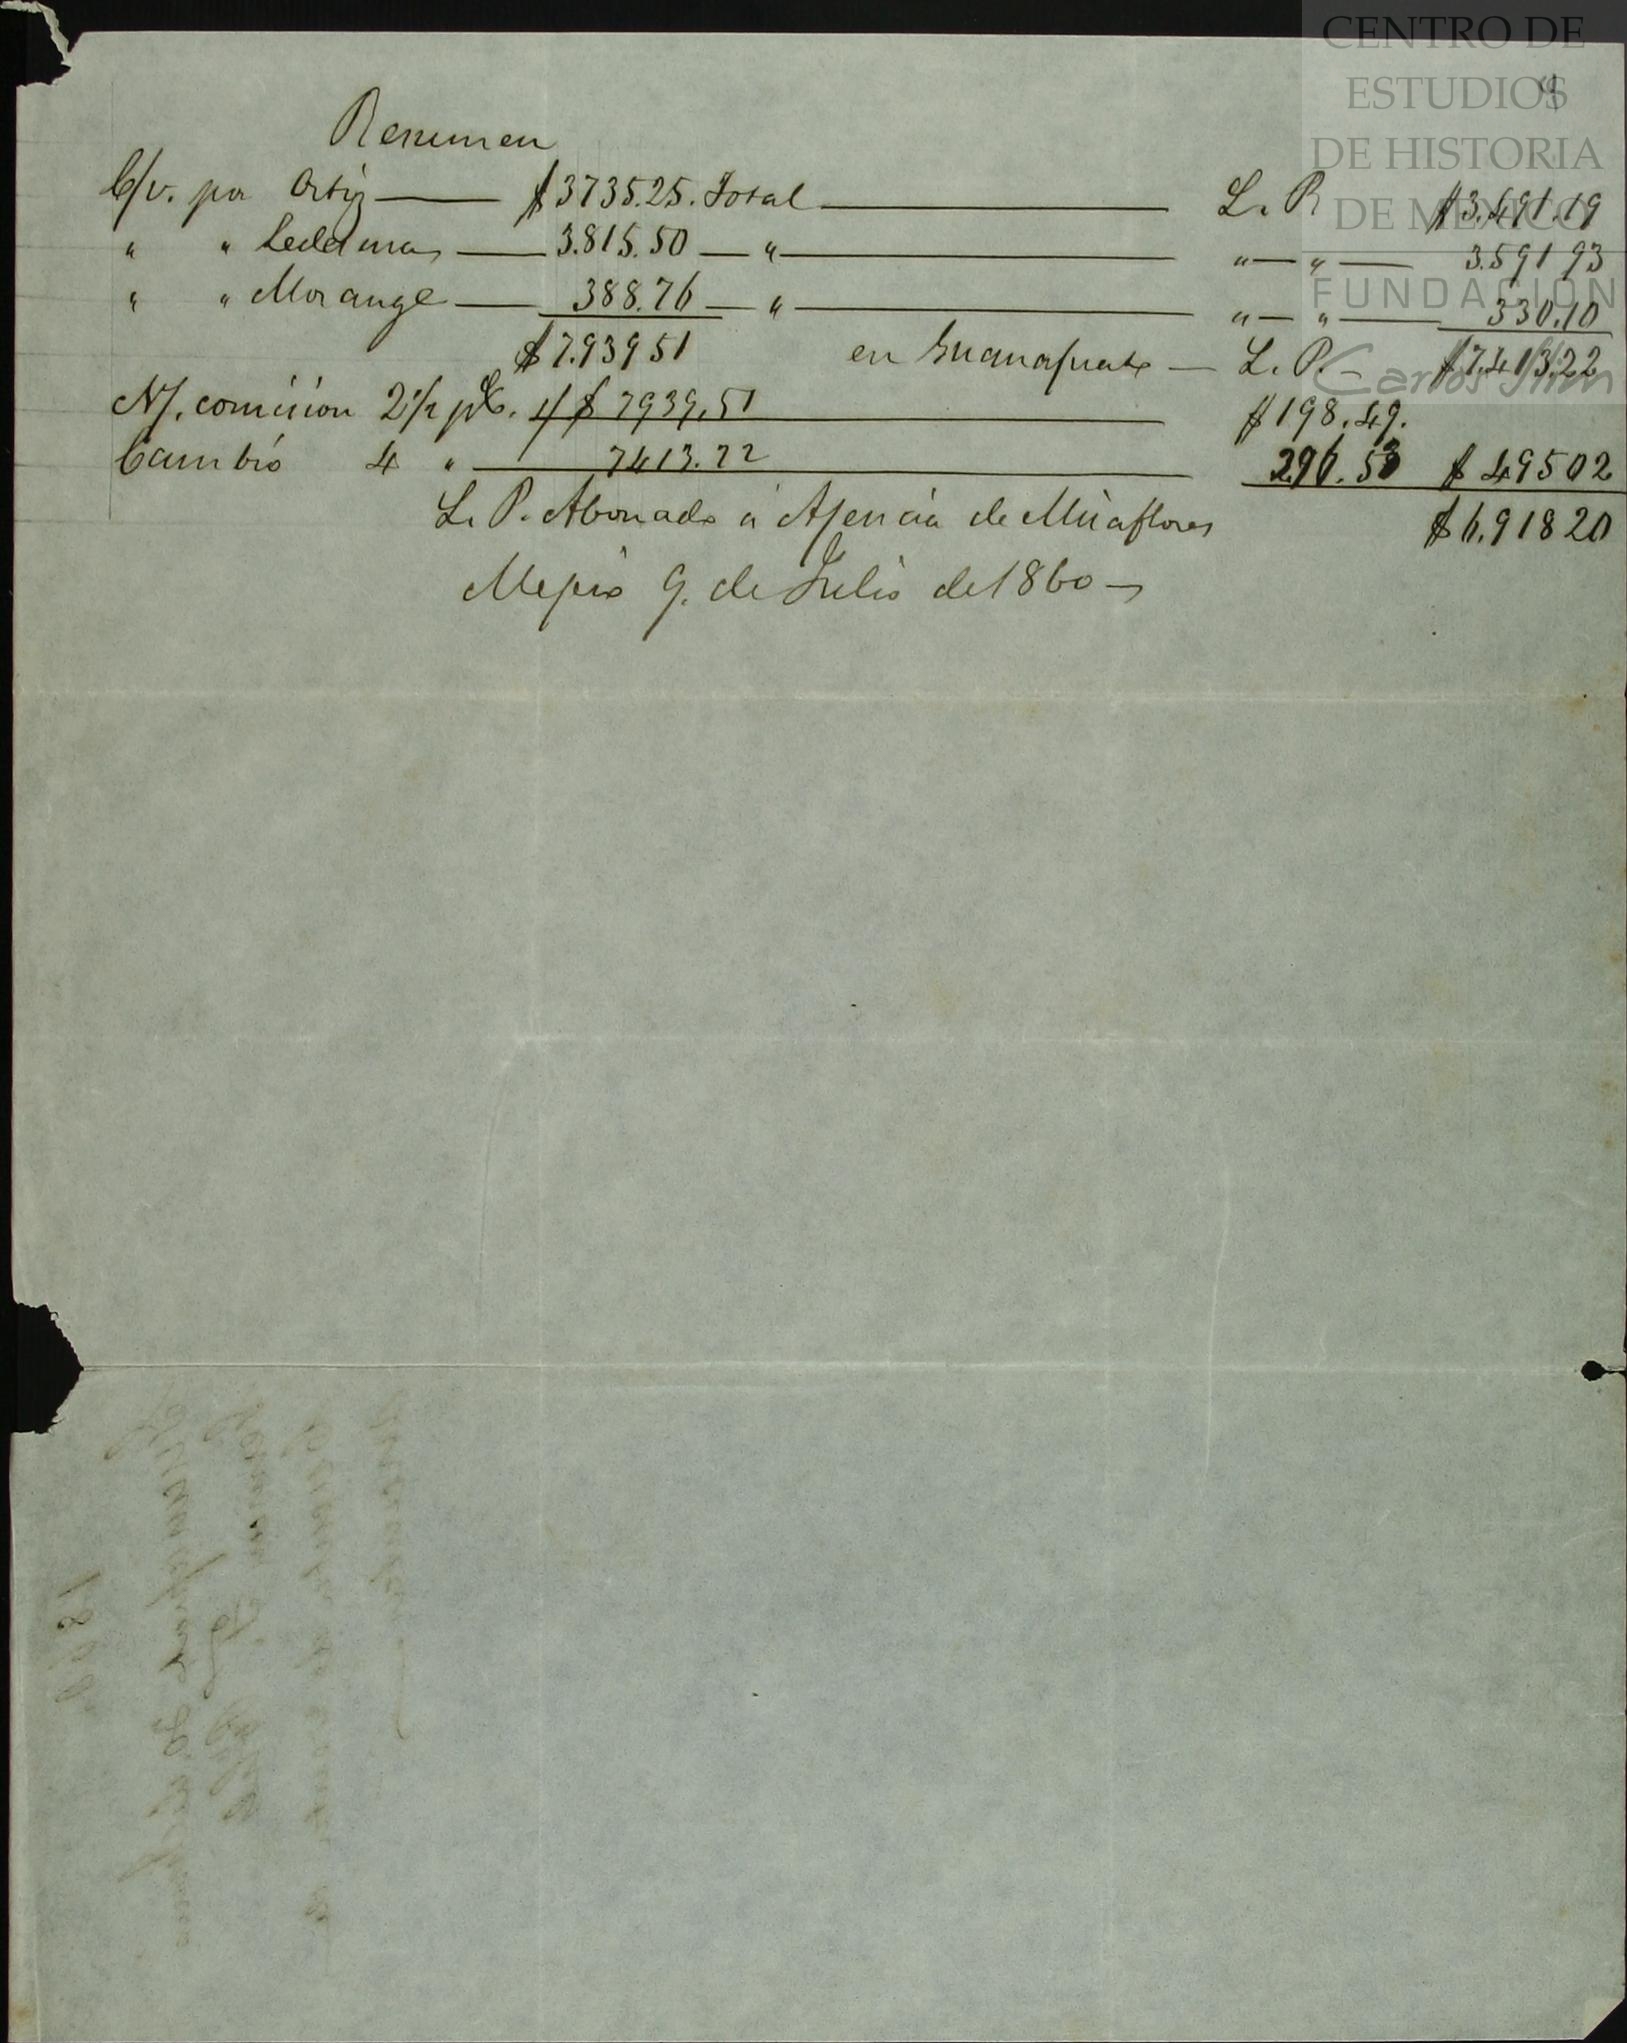 CENTRO DE
ESTUDIOS
DE HISTORIA
DE MÉXICO
FUNDACIÓN
Carlos Slim
9
Resumen
C/v. por Ortiz — $3735.25. Total — L. P. $3.491.19
" " Ledesma — 3.815.50 — " — " — " — 3.591 93
" " Morange — 388.76 — " — " — " — 330.10
$7.939 51 en Guanajuato — L. P. — $7.413.22
N/. comision 2 1/2 p%. s/ $ 7939,51 — $198.49.
Cambio 4 " — 7413.22 — 296.53 $ 495 02
L. P. Abonado á Ajencia de Miraflores $6.918 20
Mejico 9. de Julio de 1860 —